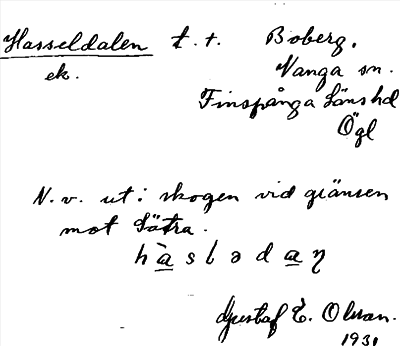 Hasseldalen t. t. Boberg.
ek. Vånga sn.
Finspånga läns hd
Ögl
N. v. ut i skogen vid gränsen
mot Sätra.
hàslədaɳ
Gustaf E. Olsson.
1931